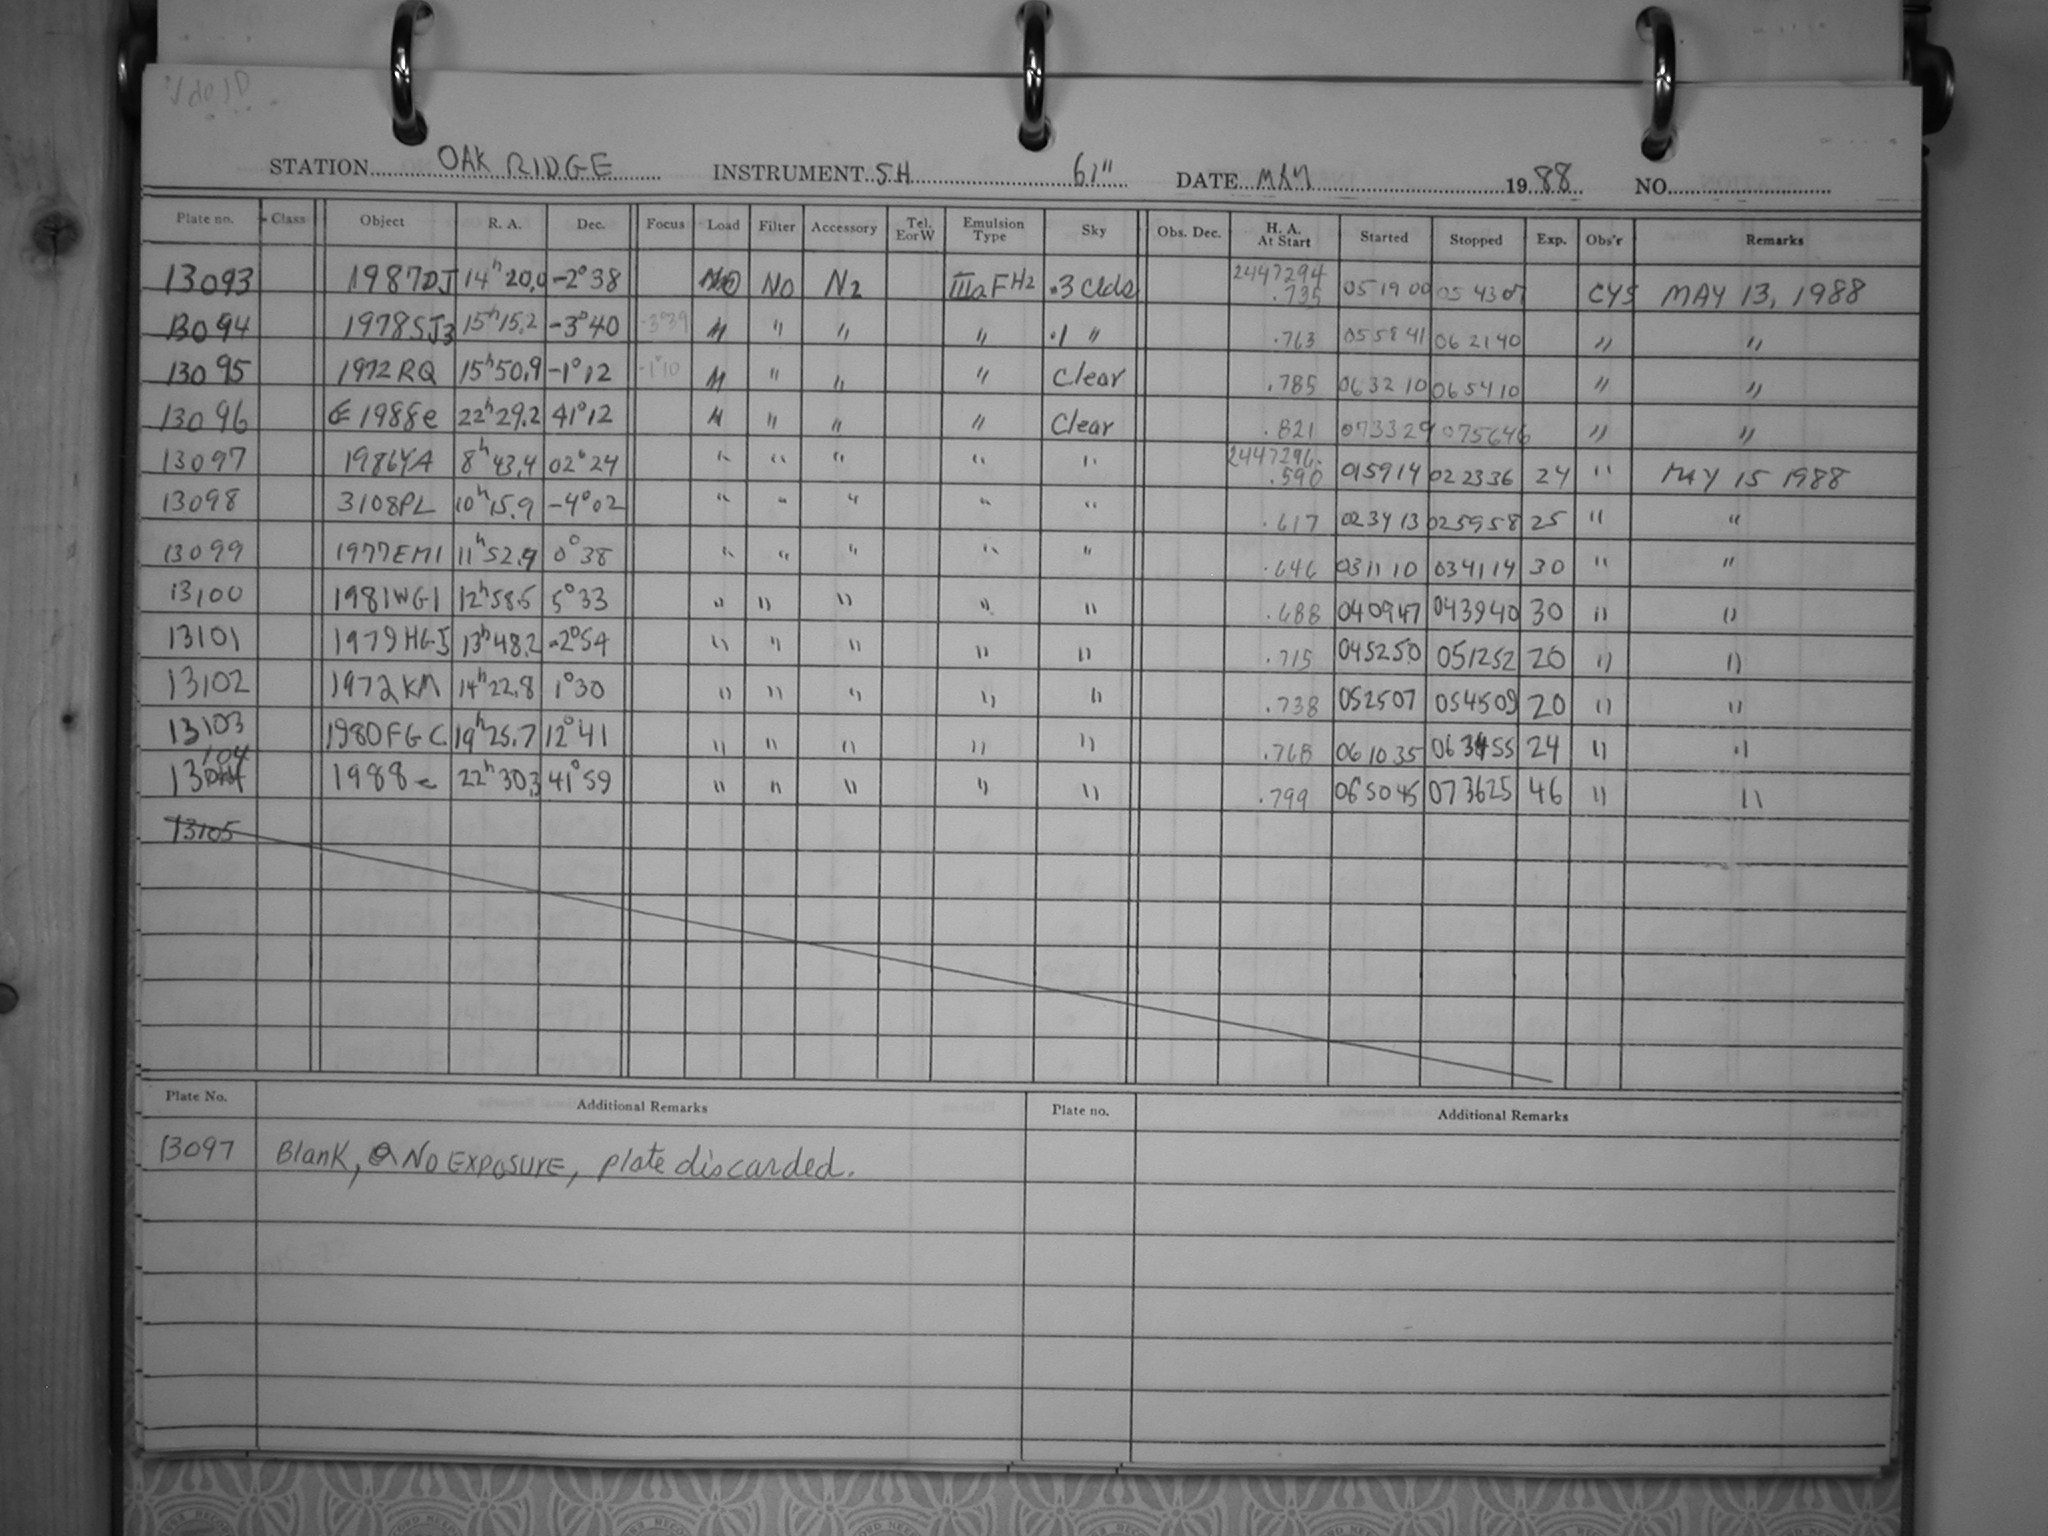 STATION OAK RIDGE INSTRUMENT SH 61" DATE MAY 1988 NO.
Plate no. Class Object R. A. Dec. Focus Load Filter Accessory Tel. E or W Emulsion Type Sky Obs. Dec. H. A. At Start Started Stopped Exp. Obs'r Remarks
13093 1987DJ 14h 20.0 -2°38 NO N2 IIIaF H2 .3 clds 2447294 .735 051900 054307 CYS MAY 13, 1988
13094 1978SJ3 15h 15.2 -3°40 -3°39 " " " " .1 " .763 055841 062140 " "
13095 1972 RQ 15h 50.9 -1°12 -1°10 " " " " Clear .785 063210 065410 " "
13096 1988e 22h 29.2 41°12 " " " " Clear .821 073329 075646 " "
13097 1986YA 8h 43.4 02°24 " " " " " 2447296. .590 015914 022336 24 " MAY 15 1988
13098 3108PL 10h 15.9 -4°02 " " " " " .617 023413 025958 25 " "
13099 1977EM1 11h 52.9 0°38 " " " " " .646 031110 034114 30 " "
13100 1981WG1 12h 58.5 5°33 " " " " " .688 040947 043940 30 " "
13101 1979HG5 13h 48.2 -2°54 " " " " " .715 045250 051252 20 " "
13102 1972KM 14h 22.8 1°30 " " " " " .738 052507 054509 20 " "
13103 1980FGC 19h 25.7 12°41 " " " " " .768 061035 063455 24 " "
13104 1988e 22h 30.3 41°59 " " " " " .799 065045 073625 46 " "
13105
Plate No. Additional Remarks Plate no. Additional Remarks
13097 Blank, No EXPOSURE, plate discarded.